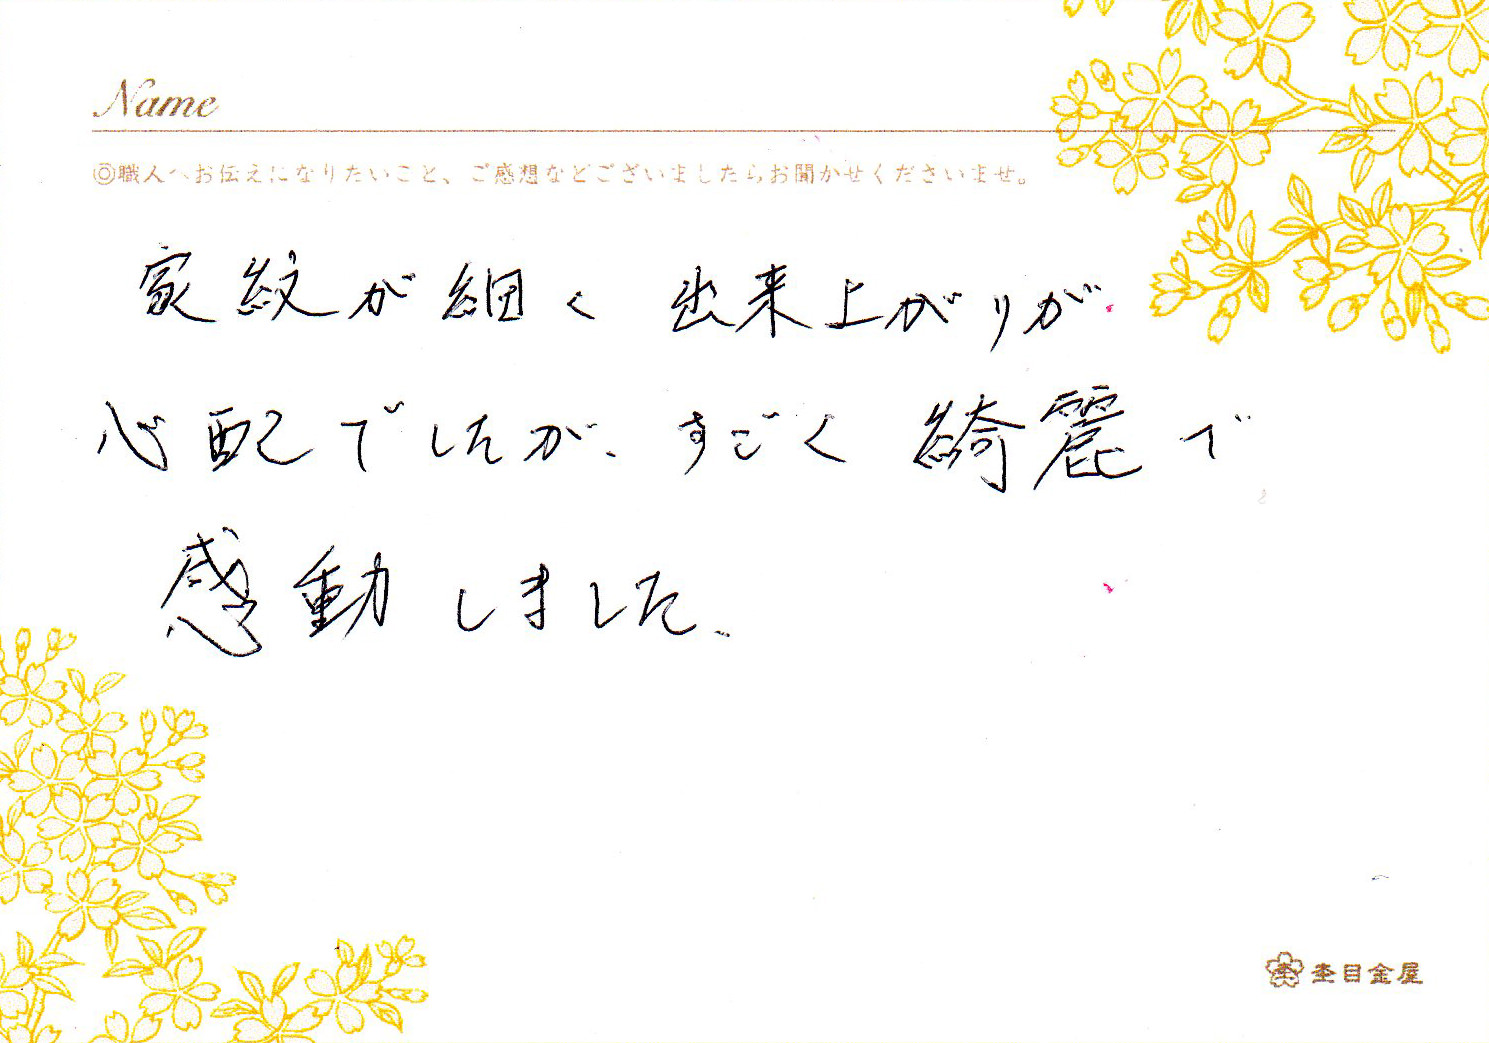 Name
◎職人へお伝えになりたいこと、ご感想などございましたらお聞かせくださいませ。
家紋が細く 出来上がりが
心配でしたが、すごく綺麗で
感動しました。
杢目金屋